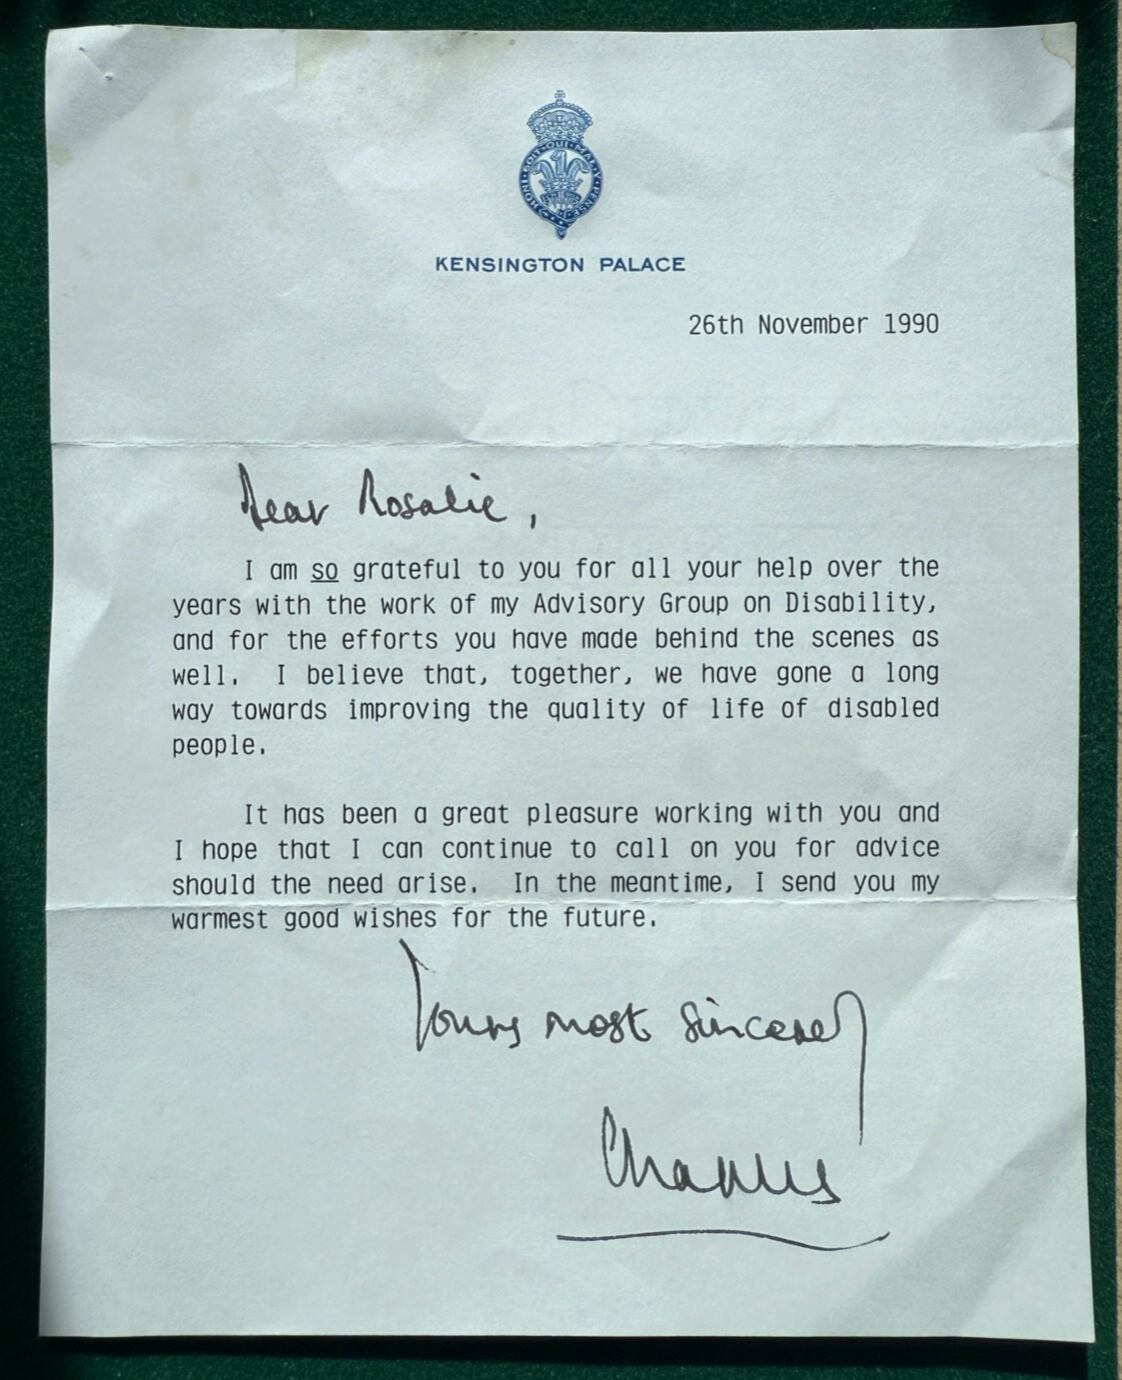 HONI·SOIT·QUI·MAL·Y·PENSE
KENSINGTON PALACE
26th November 1990
Dear Rosalie,
I am so grateful to you for all your help over the
years with the work of my Advisory Group on Disability,
and for the efforts you have made behind the scenes as
well. I believe that, together, we have gone a long
way towards improving the quality of life of disabled
people.
It has been a great pleasure working with you and
I hope that I can continue to call on you for advice
should the need arise. In the meantime, I send you my
warmest good wishes for the future.
Yours most sincerely
Charles